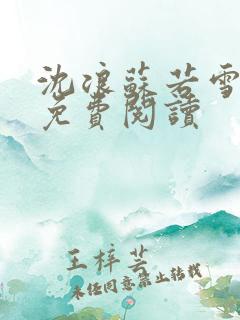 沈浪蘇若雪
免費閱讀
王梓芸
未经同意禁止转载